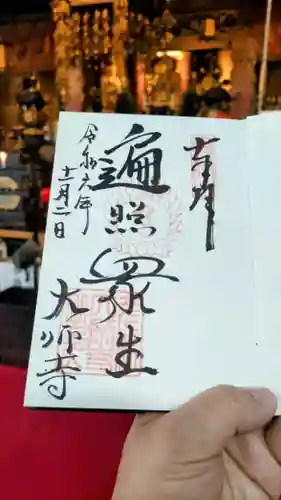 奉拝
遍照衆生
大師寺
令和六年
十一月二日